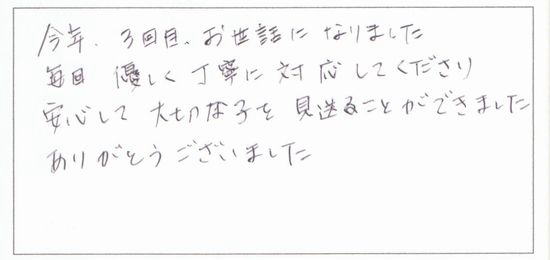 今年、3回目、お世話になりました
毎回 優しく丁寧に対応してくださり
安心して 大切な子を 見送ることができました
ありがとうございました